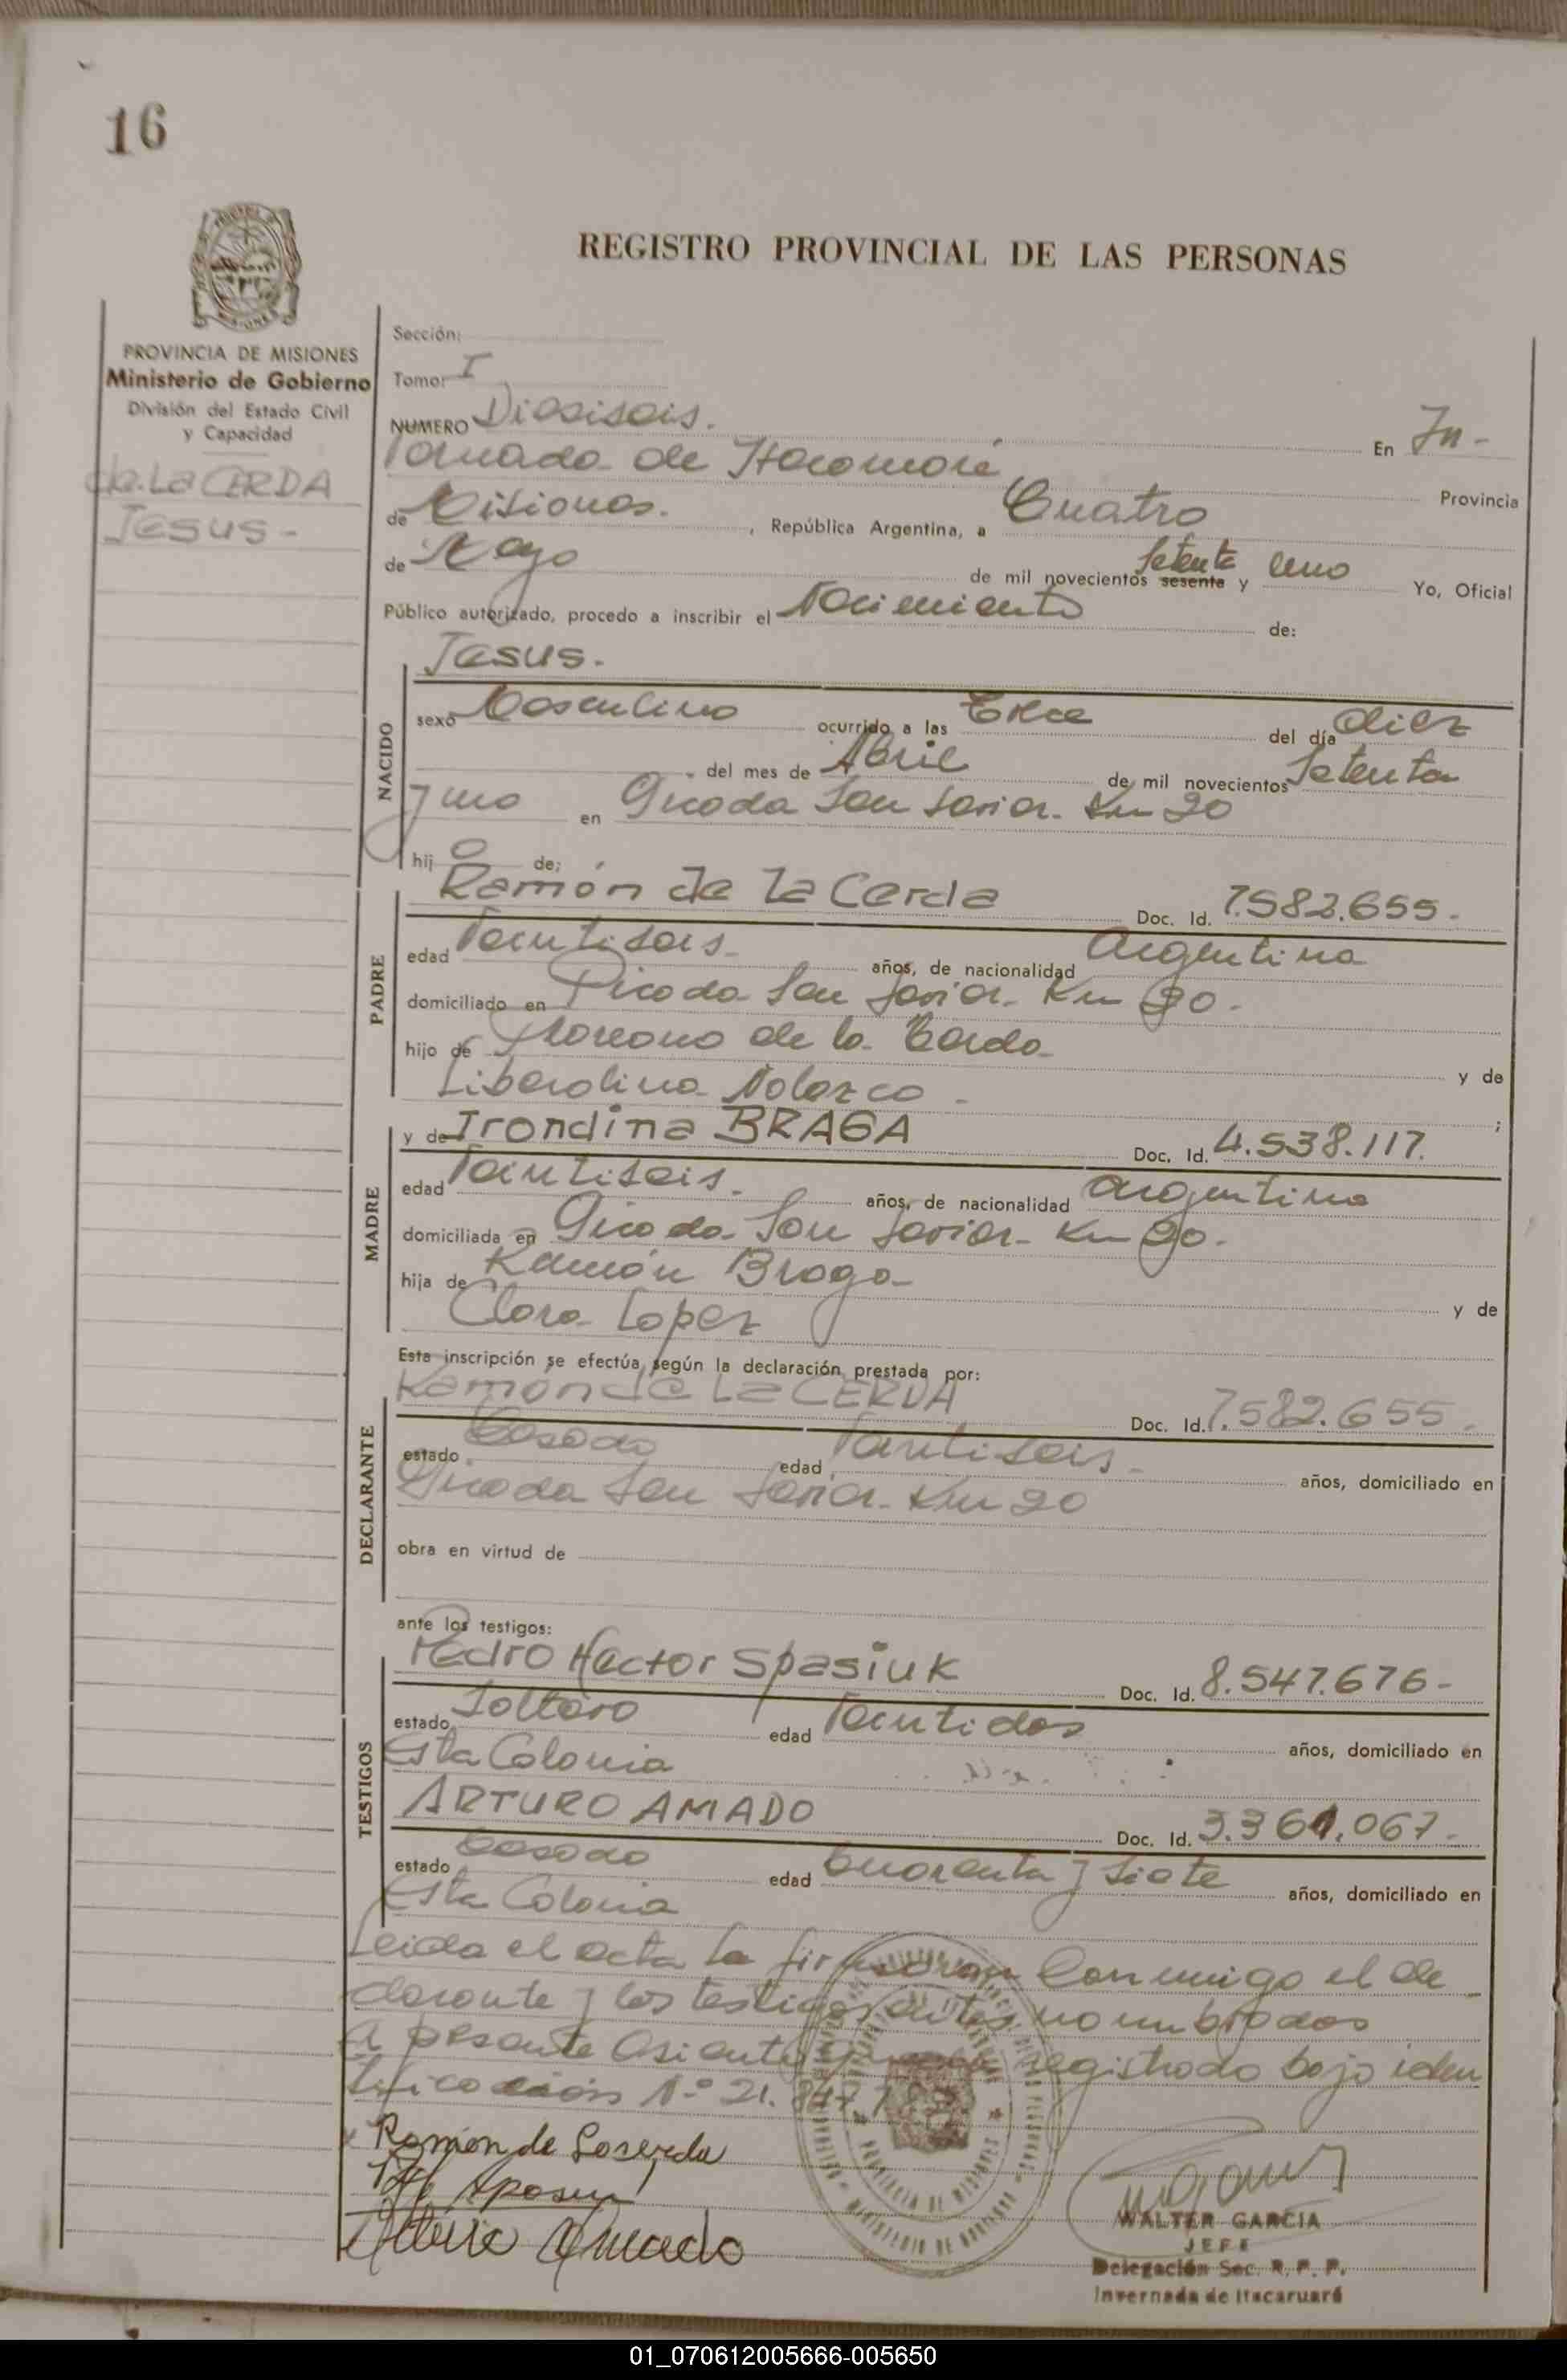 16
REGISTRO PROVINCIAL DE LAS PERSONAS
PROVINCIA DE MISIONES
Ministerio de Gobierno
División del Estado Civil
y Capacidad
de La CERDA
Jesus -
Sección:
Tomo: I
NUMERO Diesiseis. En In-
vernada de Itacaruaré Provincia
de Misiones. , República Argentina, a Cuatro
de Mayo de mil novecientos sesenta y Setenta uno Yo, Oficial
Público autorizado, procedo a inscribir el Nacimiento de:
NACIDO
Jesus.
sexo Masculino ocurrido a las Trece del día diez
del mes de Abril de mil novecientos Setenta
y uno en Picada San Javier. Km 20
hij o de:
PADRE
Ramón de la Cerda Doc. Id. 7.582.655.-
edad Veintiseis años, de nacionalidad Argentina
domiciliado en Picada San Javier. Km 20.
hijo de de la Cerda y de
Liberalina ;
MADRE
y de Irondina BRAGA Doc. Id. 4.538.117.
edad Veintiseis. años, de nacionalidad Argentina
domiciliada en Picada San Javier. Km 20.
hija de Ramón Braga y de
Clara Lopez
Esta inscripción se efectúa según la declaración prestada por:
DECLARANTE
Ramón de La CERDA Doc. Id. 7.582.655.
estado Casado edad Veintiseis. años, domiciliado en
Picada San Javier. Km 20
obra en virtud de
ante los testigos:
TESTIGOS
Pedro Hector Spasiuk Doc. Id. 8.547.676-
estado Soltero edad Veintidos años, domiciliado en
Esta Colonia
ARTURO AMADO Doc. Id. 3.361.067-
estado Casado edad Cuarenta y Siete años, domiciliado en
Esta Colonia
Leida el acta la firmaran Conmigo el de
clarante y los testigos antes nombrados
el presente Asiento registrado bajo iden
tificación Nº 21.847.
Ramón de Laserda
Arturo Amado
WALTER GARCIA
JEFE
Delegación Sec. R. P. P.
Invernada de Itacaruaré
PROVINCIA DE MISIONES
MINISTERIO DE GOBIERNO
01_070612005666-005650